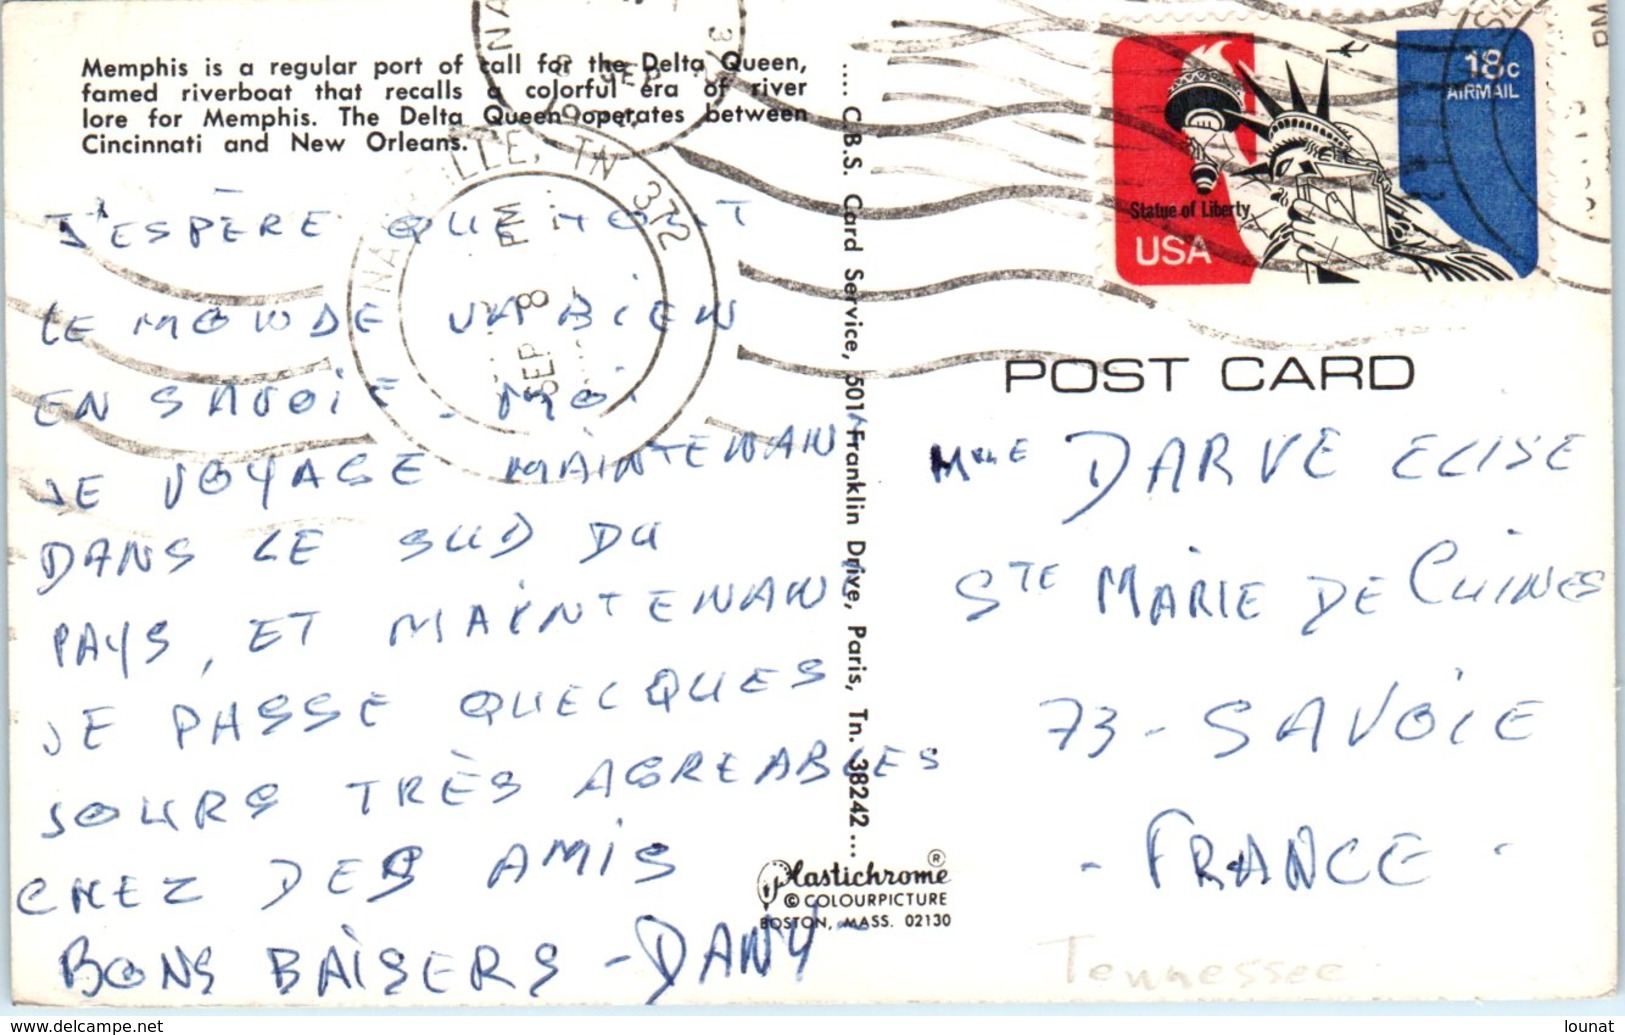 Memphis is a regular port of call for the Delta Queen,
famed riverboat that recalls a colorful era of river
lore for Memphis. The Delta Queen operates between
Cincinnati and New Orleans.
J'ESPÈRE QUE TOUT
LE MONDE VA BIEN
EN SAVOIE - MOI
JE VOYAGE MAINTENANT
DANS LE SUD DU
PAYS, ET MAINTENANT
JE PASSE QUELQUES
JOURS TRÈS AGREABLES
CHEZ DES AMIS
BONS BAISERS - DANY -
NASHVILLE, TN 372
PM
SEP 8
.... C.B.S. Card Service, 501 Franklin Drive, Paris, Tn. 38242 ....
Plastichrome ®
© COLOURPICTURE
BOSTON, MASS. 02130
18c
AIRMAIL
Statue of Liberty
USA
POST CARD
Mme DARVE ELISE
STE MARIE DE CUINES
73 - SAVOIE
- FRANCE -
Tennessee
www.delcampe.net
lounat